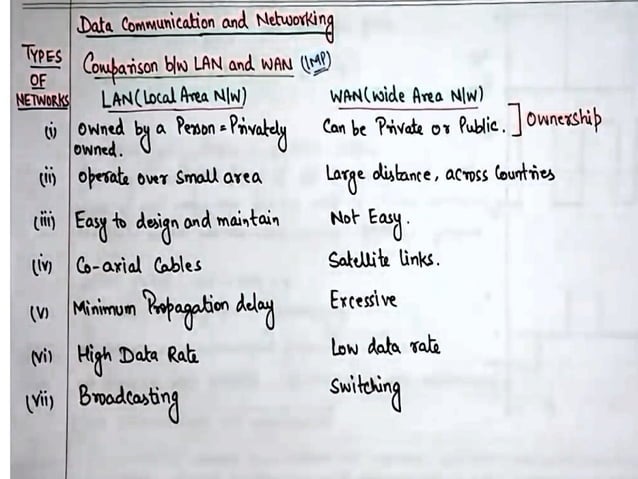 Data Communication and Networking
TYPES OF NETWORKS
Comparison b/w LAN and WAN (IMP)
LAN (Local Area N/W) WAN (Wide Area N/W)
(i) Owned by a Person = Privately owned. Can be Private or Public. ] Ownership
(ii) Operate over Small area Large distance, across Countries
(iii) Easy to design and maintain Not Easy.
(iv) Co-axial Cables Satellite links.
(v) Minimum Propagation delay Excessive
(vi) High Data Rate Low data rate
(vii) Broadcasting Switching